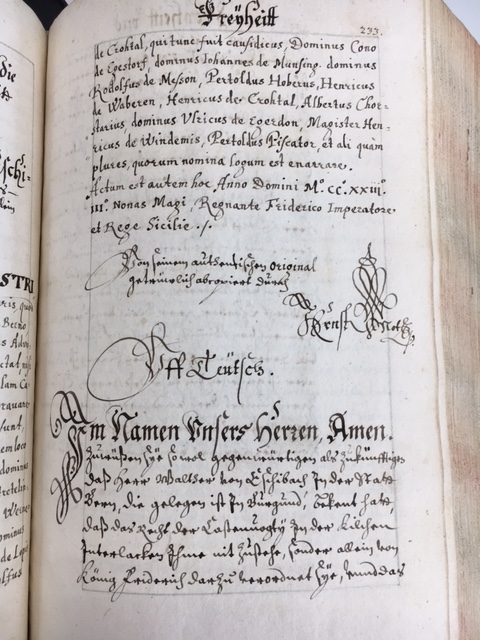 Freyheitt
233.
de Crohtal, qui tunc fuit causidicus, Dominus Cono
de Egestorf, dominus Iohannes de Munsing. dominus
Rodolfus de Messon, Pertoldus Hoberus, Henricus
de Waberen, Henricus de Crohtal, Albertus Chor-
starius, dominus Ulricus de Egerdon, Magister Hen-
ricus de Windemis, Pertoldus Piscator, et alÿ quàm
plures, quorum nomina longum est enarrare.
Actum est autem hoc Anno Domini M°. CC°. XXIII°.
III°. Nonas Magi, Regnante Friderico Imperatore
et Rege Sicilie ./.
Von seinem authentischen Original
getrüwlich abcopiert durch
Ernst
Uff Teütsch.
Im Namen Unsers Herren, Amen.
Zu wüssen sÿe sowol gegenwürtigen als zukünfftigen
daß Herr Walther von Eschibach in der Statt
Bern, die gelegen ist in Burgund, bekent hatt,
daß das Recht der Castenvogtÿ in der Kilchen
Interlacken Ihme nit zustehe, sonder allein von
König Friderich darzu verordnet sÿe, unnd das